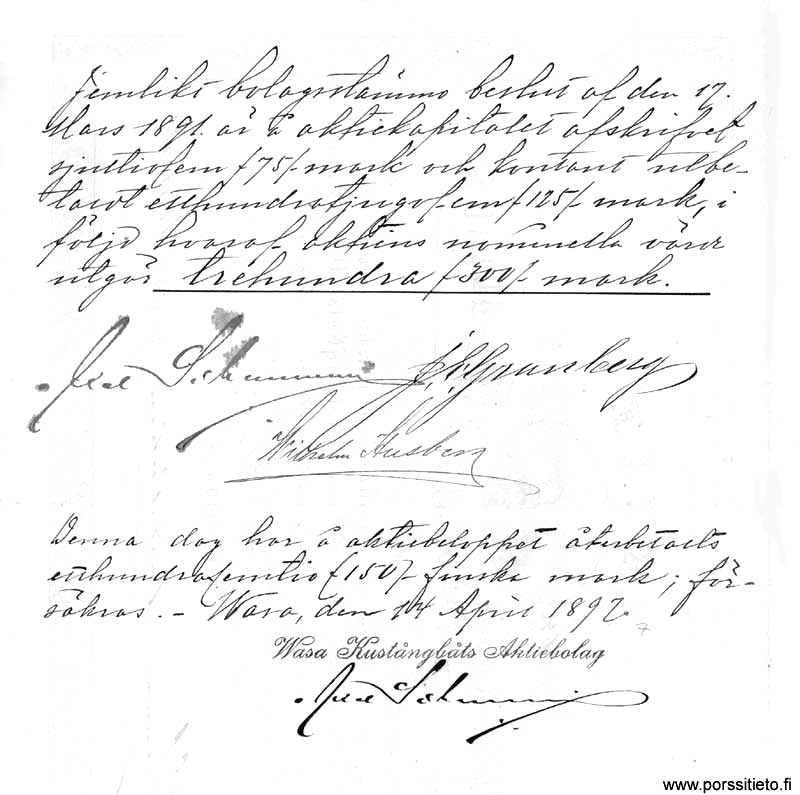 Jemlikt bolagsstämmo beslut af den 17.
Mars 1891. är å aktiekapitalet afskrifvet
sjuttiofem /75/- mark och kontant utbe-
taldt etthundratjugofem /125/- mark, i
följd hvaraf aktiens nominella värde
utgör trehundra /300/- mark.
Axel J.E. Granberg
Wilhelm Husberg
Denna dag har å aktiebeloppet återbetalts
etthundrafemtio /150/- finska mark; för-
säkras. - Wasa, den 14 April 1897.
Wasa Kustångbåts Aktiebolag
Axel
www.porssitieto.fi